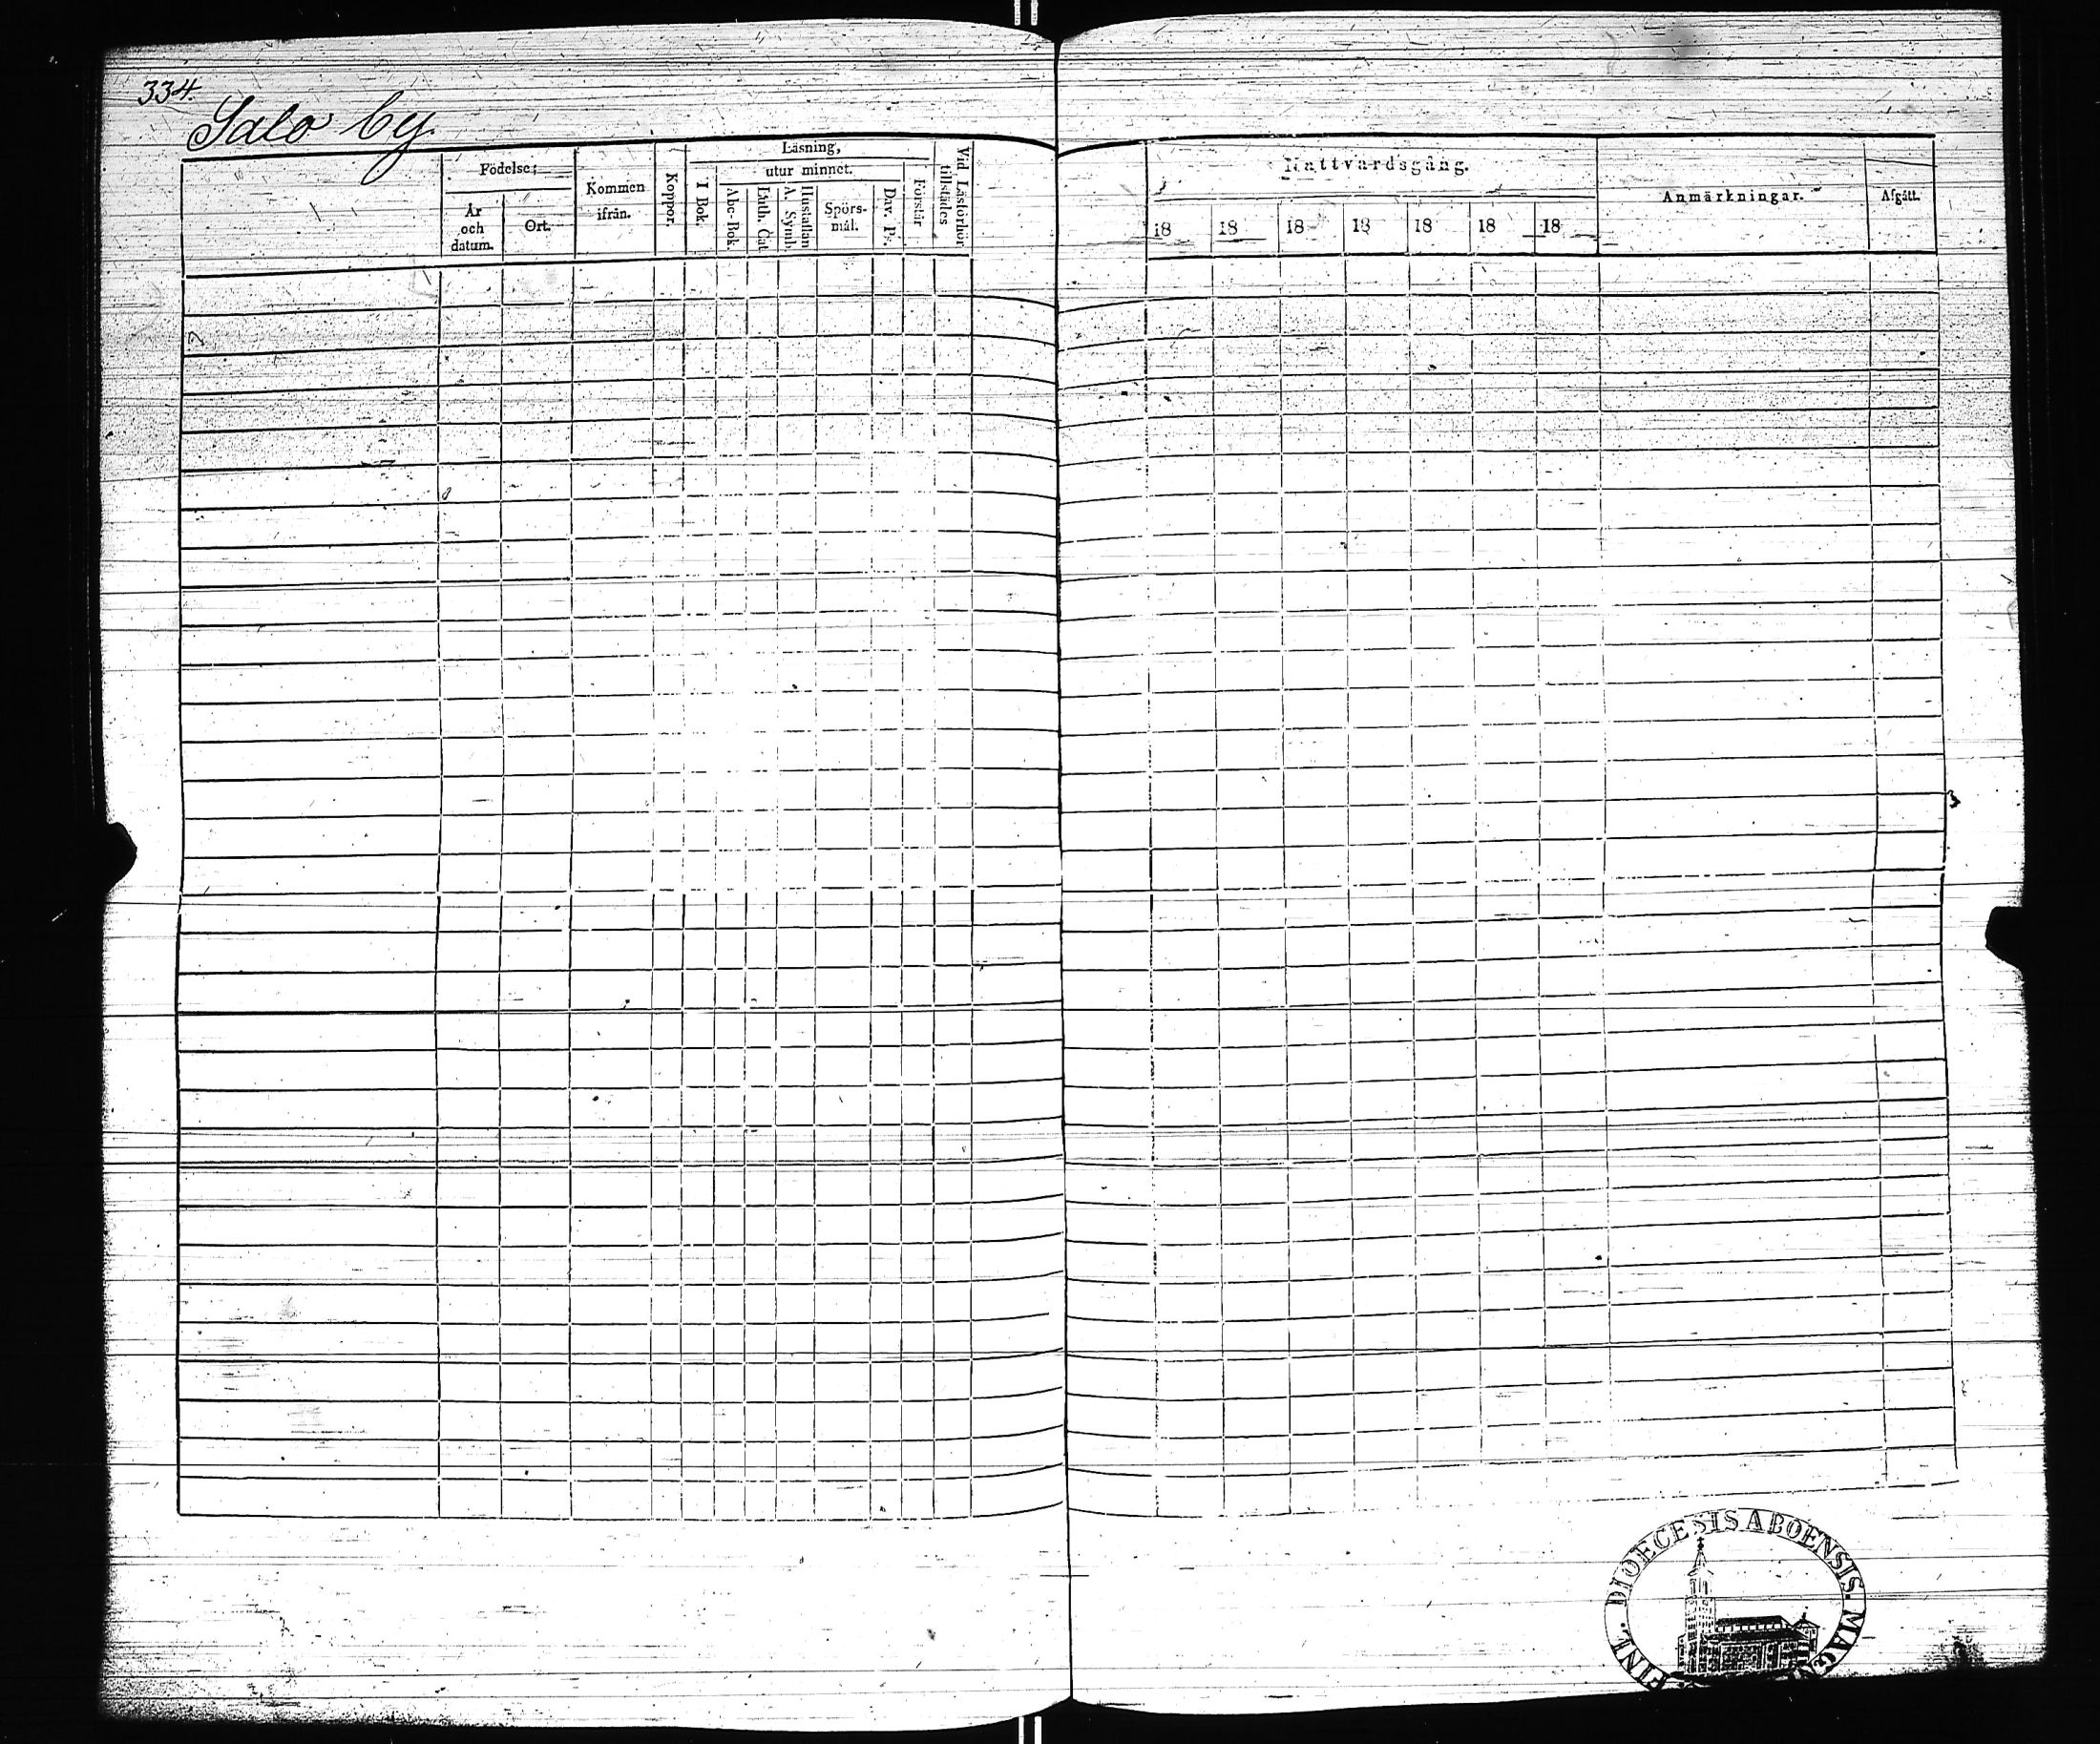 334.
Salo by.
Födelse;
År och datum.
Ort.
Kommen ifrån.
Koppor.
Läsning,
I Bok.
utur minnet.
Abc-Bok.
Luth. Cat.
Hustaflan A. Symb.
Spörsmål.
Dav. Ps.
Förstår
Vid Läsförhör tillstädes
Nattvardsgång.
18 18 18 18 18 18 18
Anmärkningar.
Afgått.
FINL. DIOECESIS ABOENSIS. MAGN